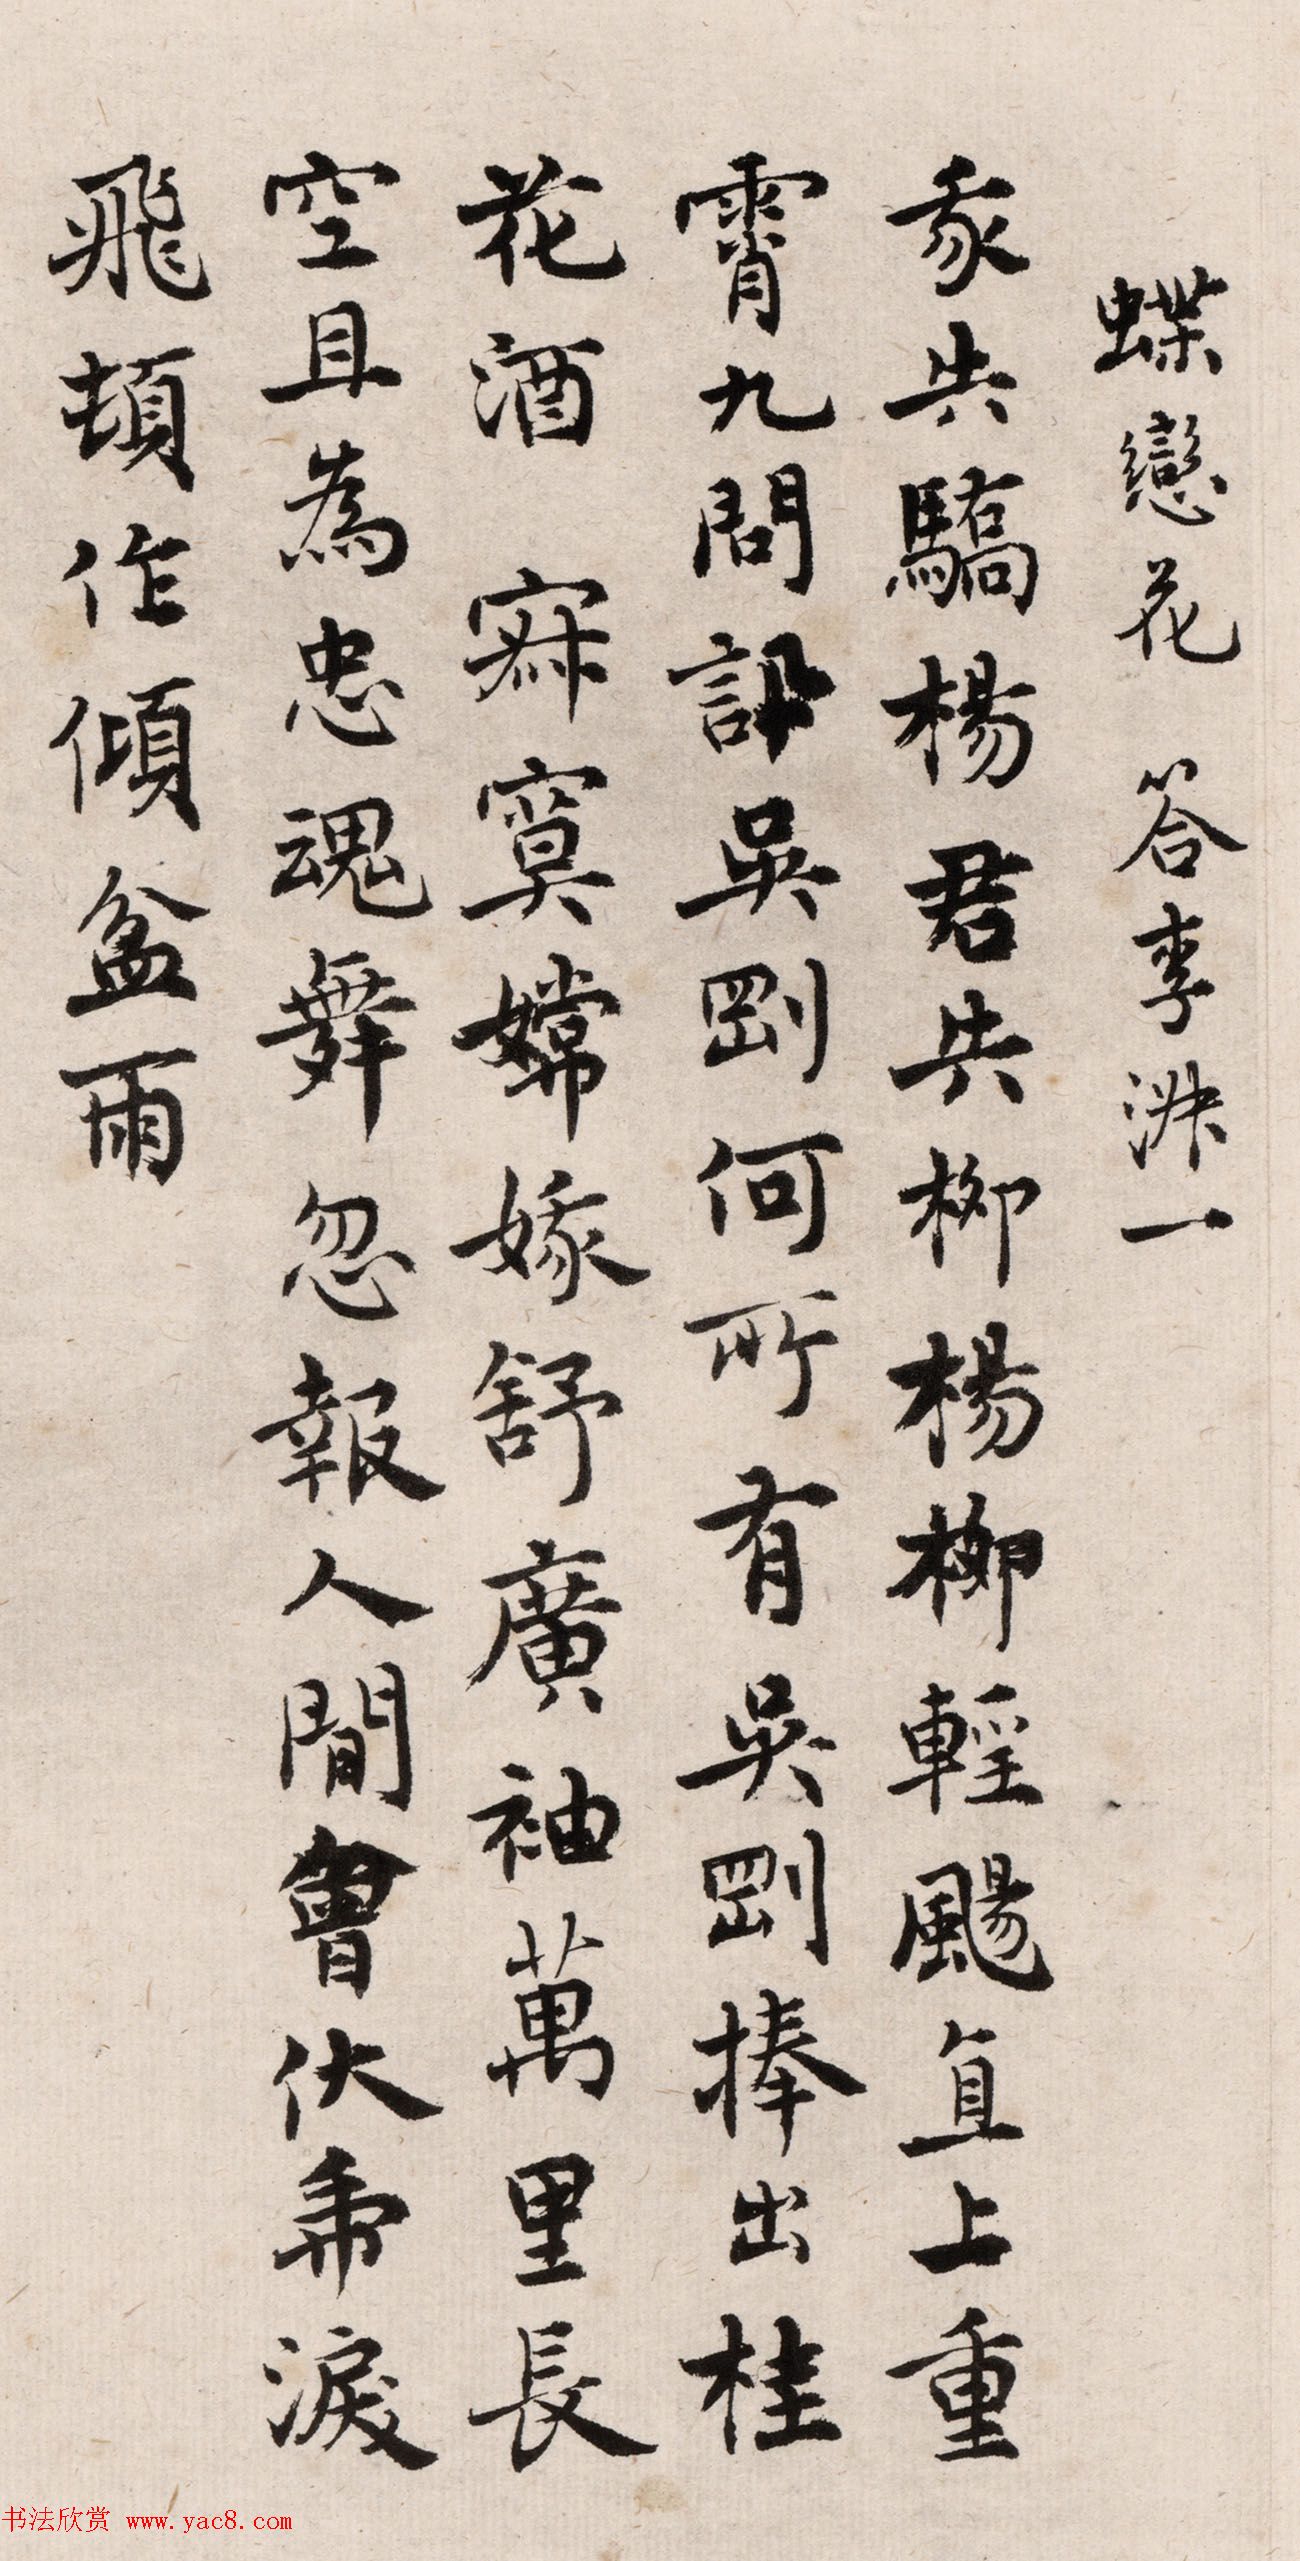 蝶戀花 答李淑一
我失驕楊君失柳楊柳輕颺直上重
霄九問訊吳剛何所有吳剛捧出桂
花酒 寂寞嫦娥舒廣袖萬里長
空且為忠魂舞忽報人閒曾伏虎淚
飛頓作傾盆雨
书法欣赏 www.yac8.com